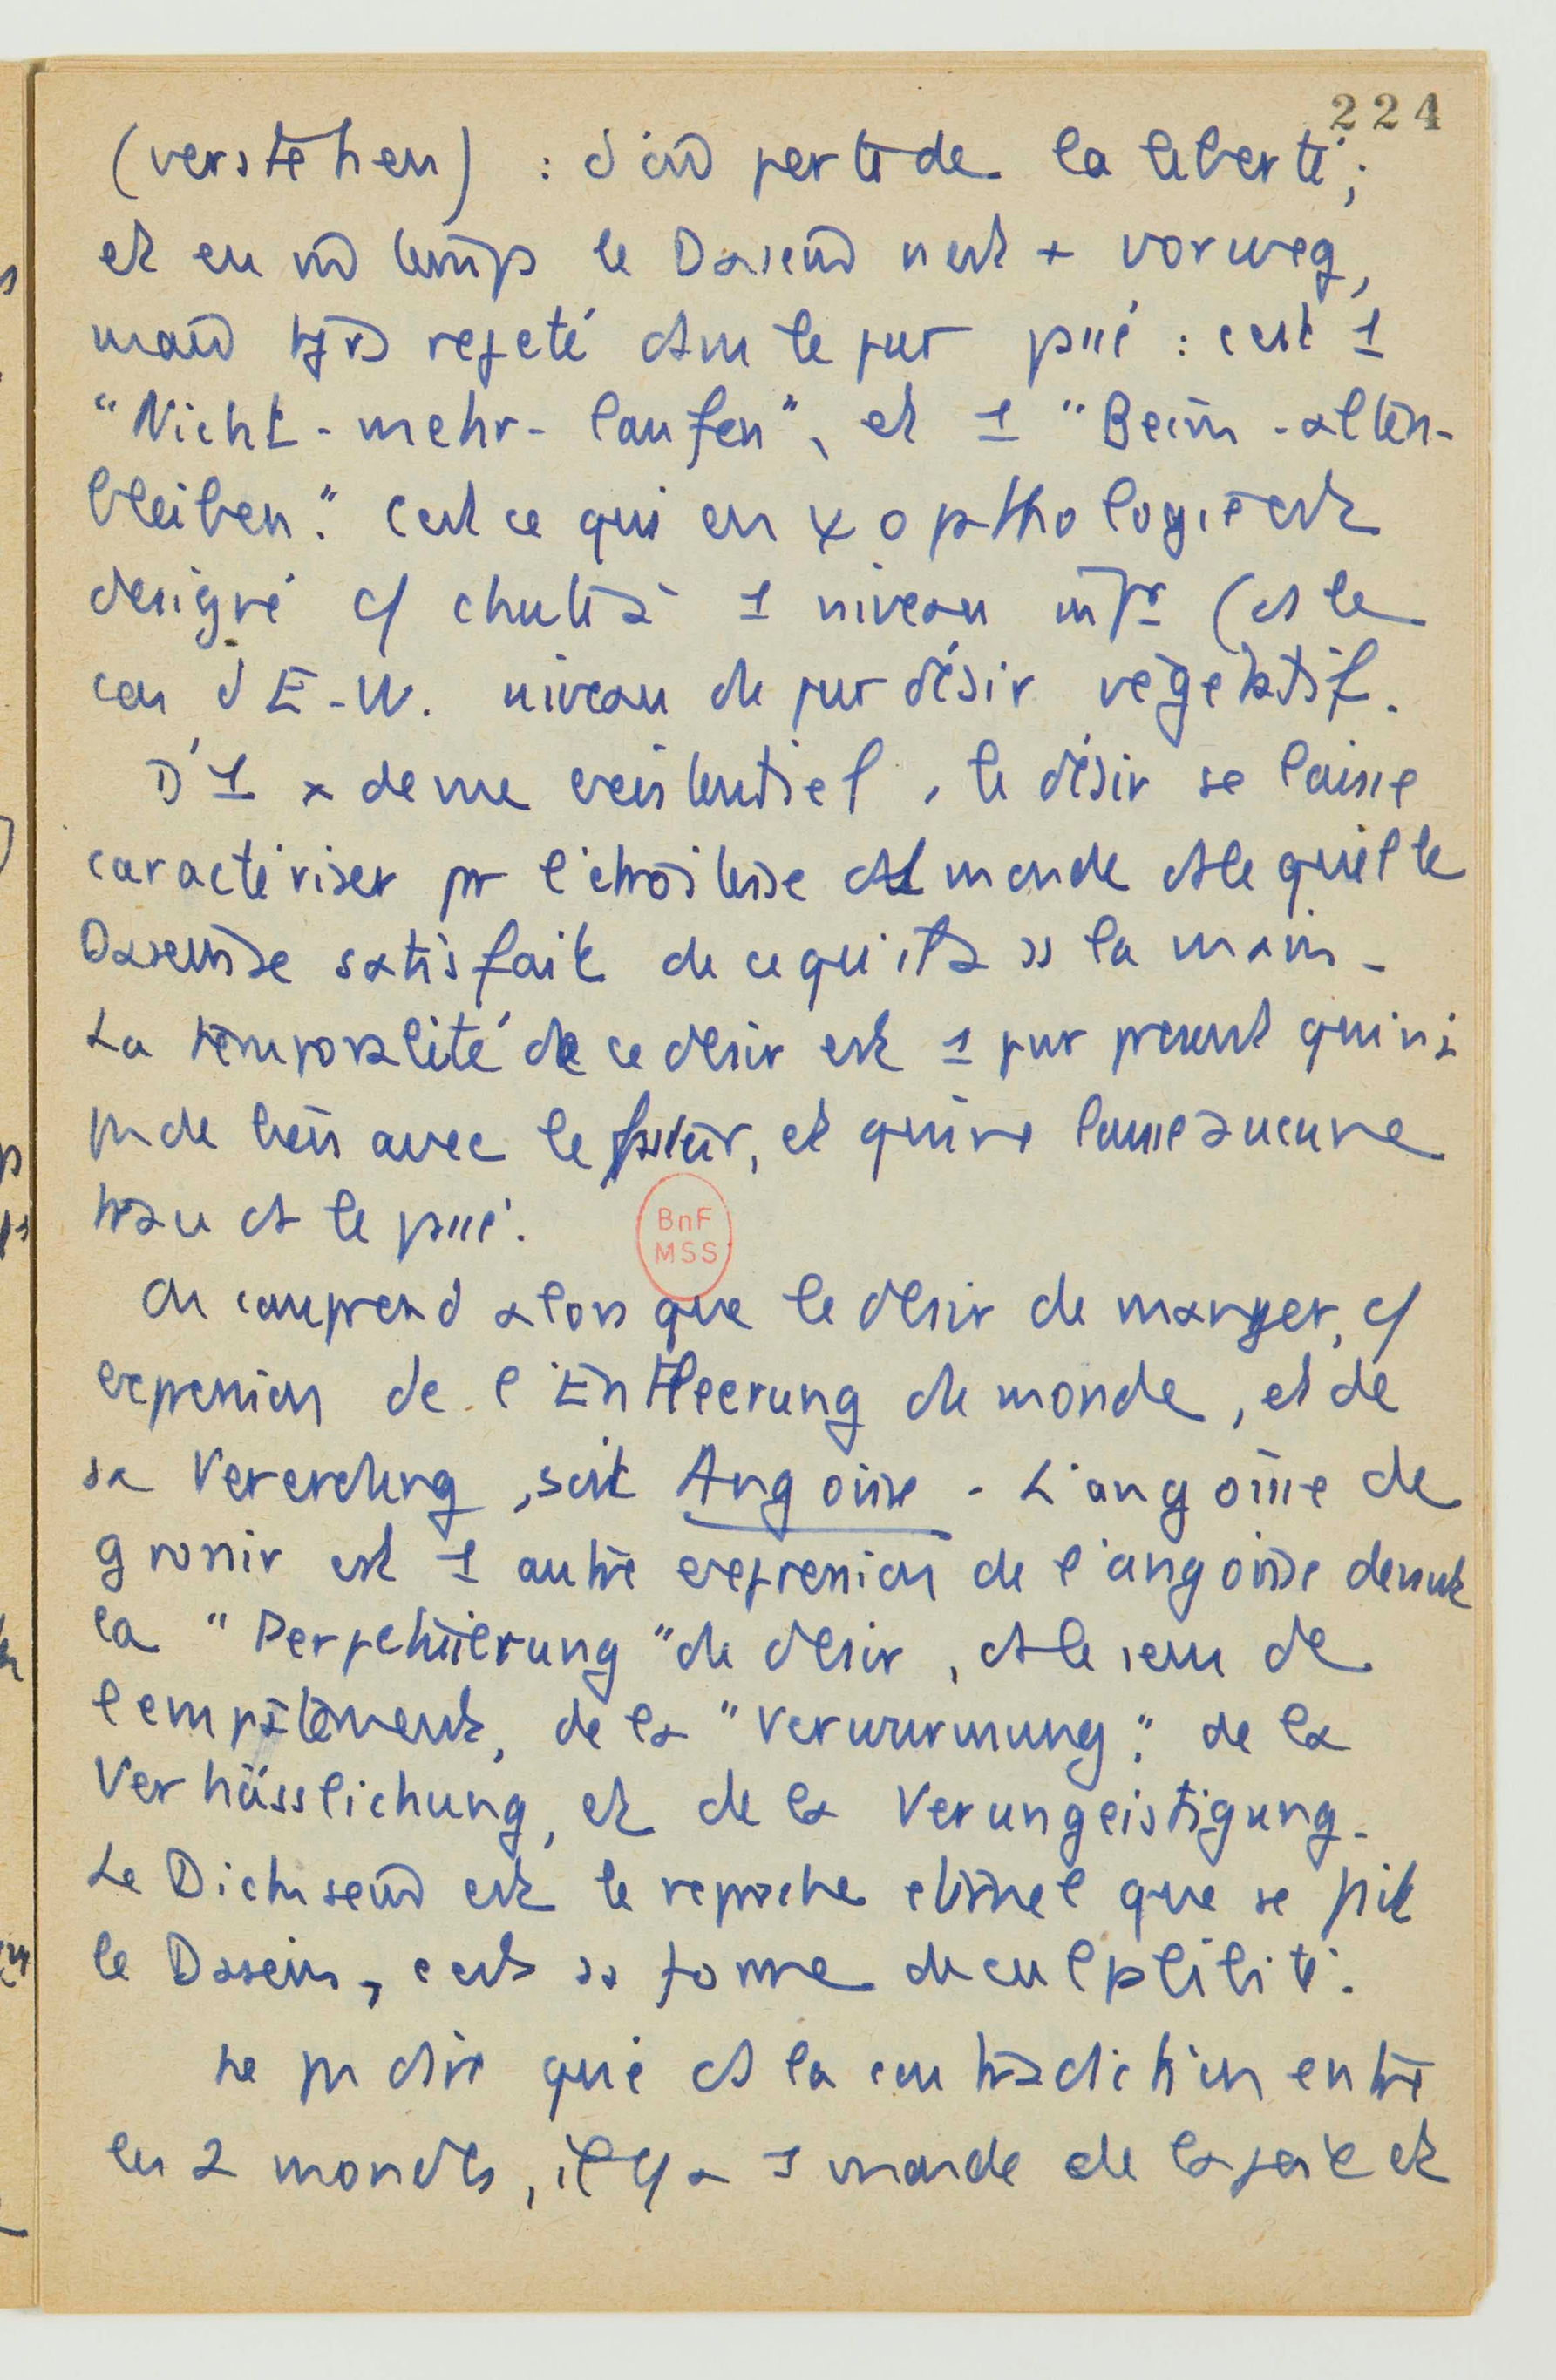 224
(verstehen) : d'où perte de la liberté ;
et en m̂ temps le Dasein n'est + vorweg,
mais tjrs rejeté ds le pur passé : c'est 1
"Nicht-mehr-laufen", et 1 "Beim-alten-
bleiben". C'est ce qui en ψopathologie est
désigné c/ chute à 1 niveau infr (ds le
cas d'E-W. niveau du pur désir végétatif.
D'1 x de vue existentiel, le désir se laisse
caractériser pr l'étroitesse du monde ds lequel le
Dasein se satisfait de ce qu'il a ss la main -
La temporalité de ce désir est 1 pur présent qui n'a
pas de lien avec le futur, et qui ne laisse aucune
trace ds le passé.
BnF
MSS
On comprend alors que le désir de manger, c/
expression de l'Entleerung du monde, et de
sa Vererdung, soit Angoisse - L'angoisse de
grossir est 1 autre expression de l'angoisse devant
la "Perpetuierung" du désir, ds le sens de
l'empâtement, de la "Verwurmung", de la
Verhässlichung, et de la Verungeistigung.
Le Dicksein est le reproche éternel que se fait
le Dasein, c'est sa forme de culpabilité.
ne pas dire que ds la contradiction entre
les 2 mondes, il y a 1 monde de la joie et